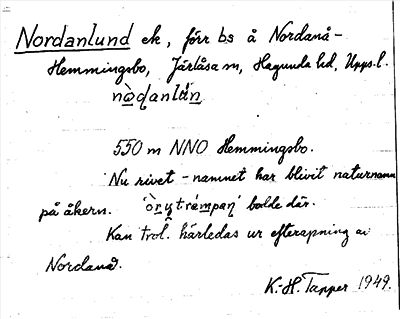 Nordanlund ek, förr bs å Nordanå-
Hemmingsbo, Järlåsa sn, Hagunda hd, Upps.l.
nòḍanlúṇ
550 m NNO Hemmingsbo.
Nu rivet - namnet har blivit naturnamn
på åkern. bodde där.
Kan trol. härledas ur efterapning av
Nordanå.
K.-H. Tapper 1949.